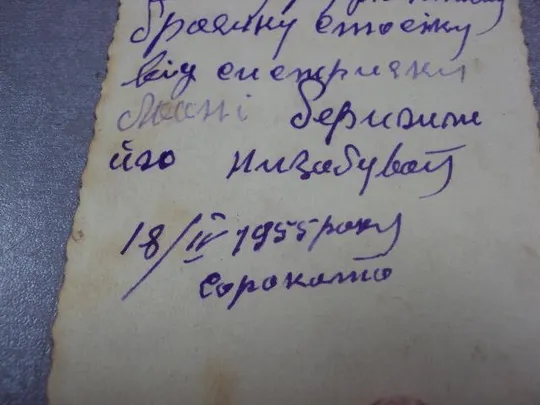 братку Стасіку
від систрички
Мані бережи
його низабувай
18/IV 1955 року
Сорокато